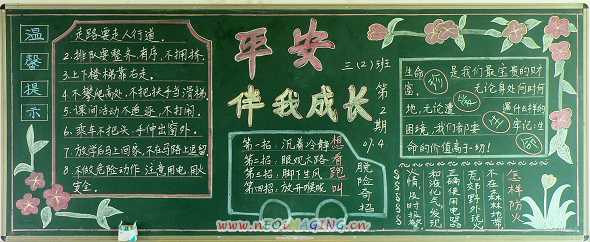 温馨提示
走路要走人行道.
2.排队要整齐.有序.不拥挤.
3.上下楼梯靠右走.
4.不攀爬高处.不把扶手当滑梯.
5.课间活动不追逐.不打闹.
6.乘车不把头.手伸出窗外.
7.放学后马上回家.不在马路上逗留.
8.不做危险动作.注意用电.用火
安全.
平安
伴我成长
三(2)班
第2期
07.4
第一招:沉着冷静想
第二招:眼观六路看
第三招:脚下生风跑
第四招:放开喉咙叫
脱险奇招
生命 是我们最宝贵的财
富. 无论身处何时何
地,无论遭 遇什么样的
困境,我们都要 牢记:生
命的价值高于一切!
怎样防火
不在森林地带
荒郊野外玩火
正确使用电器
和液化气.发现
火情,及时报警
www.nEOIMAGING.cn